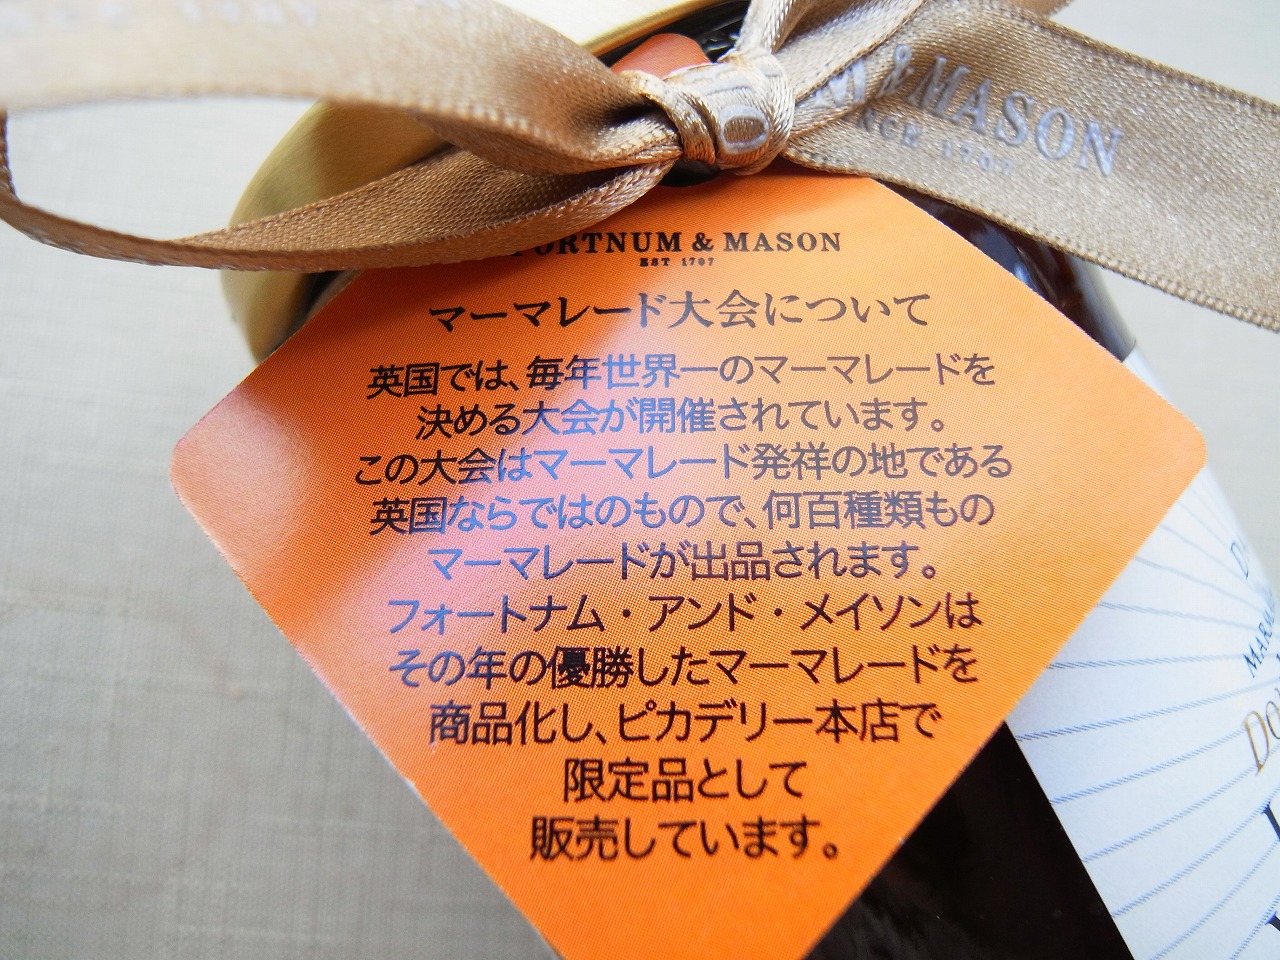 & MASON
1707
FORTNUM & MASON
EST 1707
マーマレード大会について
英国では、毎年世界一のマーマレードを
決める大会が開催されています。
この大会はマーマレード発祥の地である
英国ならではのもので、何百種類もの
マーマレードが出品されます。
フォートナム・アンド・メイソンは
その年の優勝したマーマレードを
商品化し、ピカデリー本店で
限定品として
販売しています。